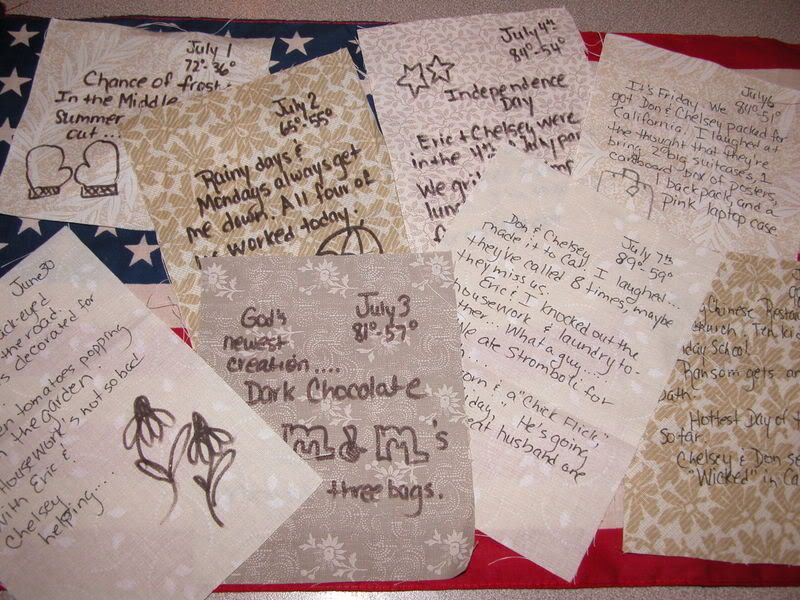 July 1
72°-36°
Chance of frost
In the Middle
Summer
out...
July 2
65°-55°
Rainy days &
Mondays always get
me down. All four of
us worked today.
July 4th
84°-54°
Independence
Day
Eric & Chelsey were
in the 4th of July par
We gri
lun
f
of
July 6
84°-51°
It's Friday. We
got Don & Chelsey packed for
California. I laughed at
the thought that they're
bring 2 big suitcases, 1
cardboard box of posters,
1 backpack, and a
pink laptop case
June 30
ck-eyed
the road.
s decorated for
en tomatoes popping
n the garden.
Housework's not so bad
with Eric &
Chelsey
helping...
July 3
81°-57°
God's
newest
creation....
Dark Chocolate
M & M's
three bags.
July 7th
89°-59°
Don & Chelsey
made it to Cal. I laughed...
they've called 8 times, maybe
they miss us.
Eric & I knocked out the
housework & laundry to-
ther... What a guy....
We ate Stromboli for
orn & a "Chick Flick,"
iday," He's going
eat husband one
J
Chinese Resta
church. Ten ki
day School
Ransom gets a
bath.
Hottest Day of t
so far.
Chelsey & Don se
"Wicked" in Ca